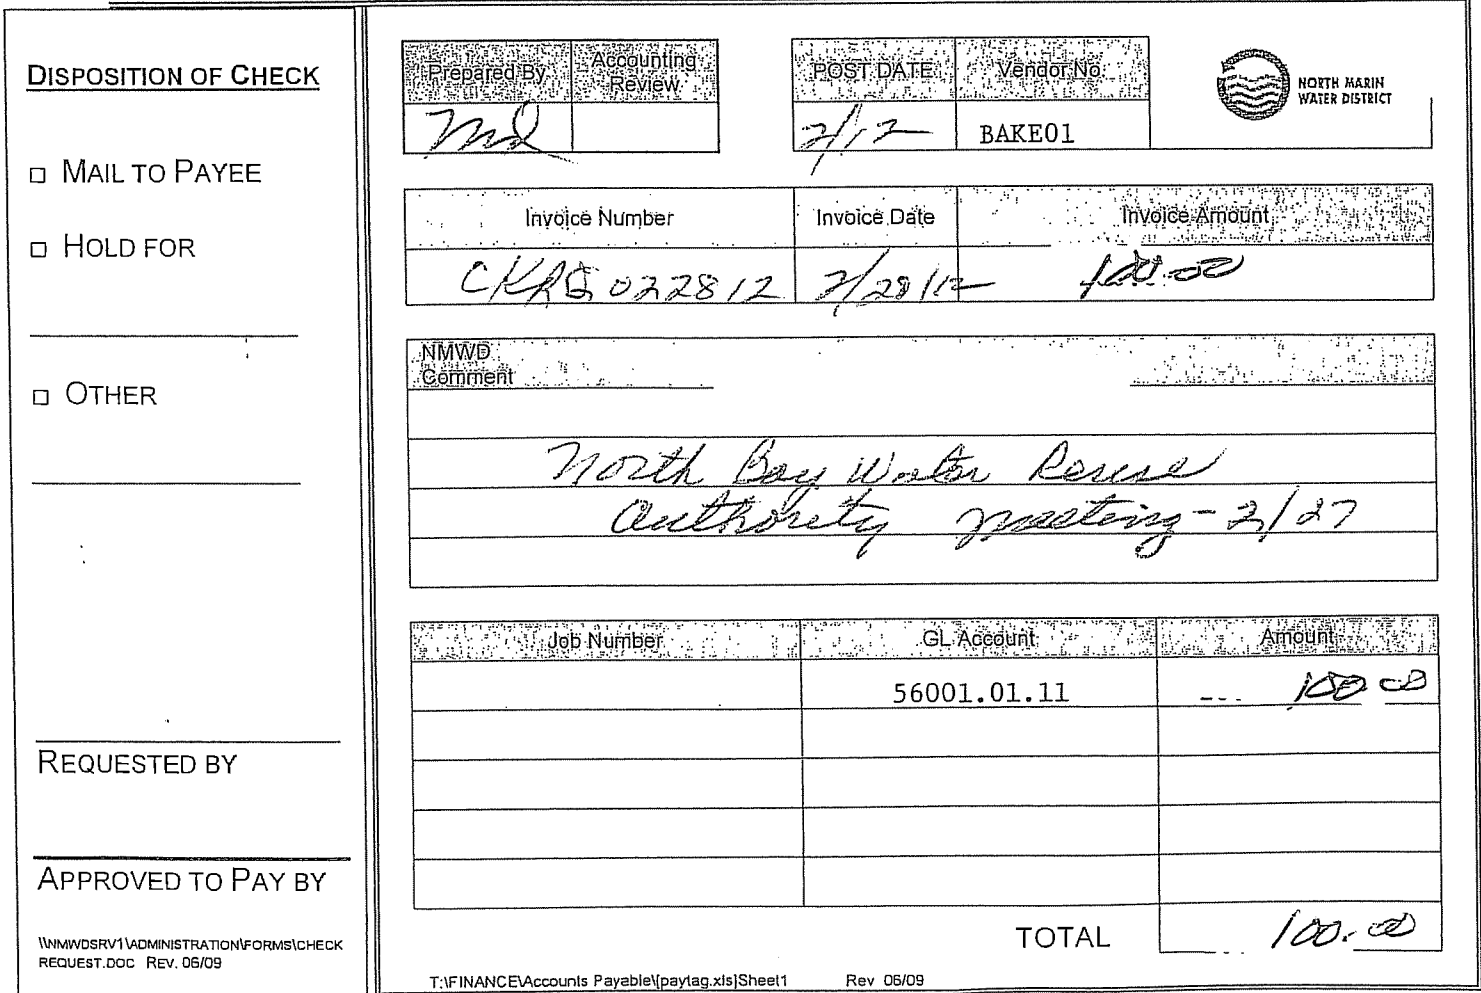 DISPOSITION OF CHECK
□ MAIL TO PAYEE
□ HOLD FOR
□ OTHER
REQUESTED BY
APPROVED TO PAY BY
\\NMWDSRV1\ADMINISTRATION\FORMS\CHECK
REQUEST.DOC REV. 06/09
Prepared By
Accounting
Review
POST DATE
Vendor No.
2/12
BAKE01
NORTH MARIN
WATER DISTRICT
Invoice Number
Invoice Date
Invoice Amount
CKRQ 022812
2/28/12
100.00
NMWD
Comment
North Bay Water Reuse
Authority meeting - 2/27
Job Number
GL Account
Amount
56001.01.11
100.00
TOTAL
100.00
T:\FINANCE\Accounts Payable\[paytag.xls]Sheet1 Rev 06/09